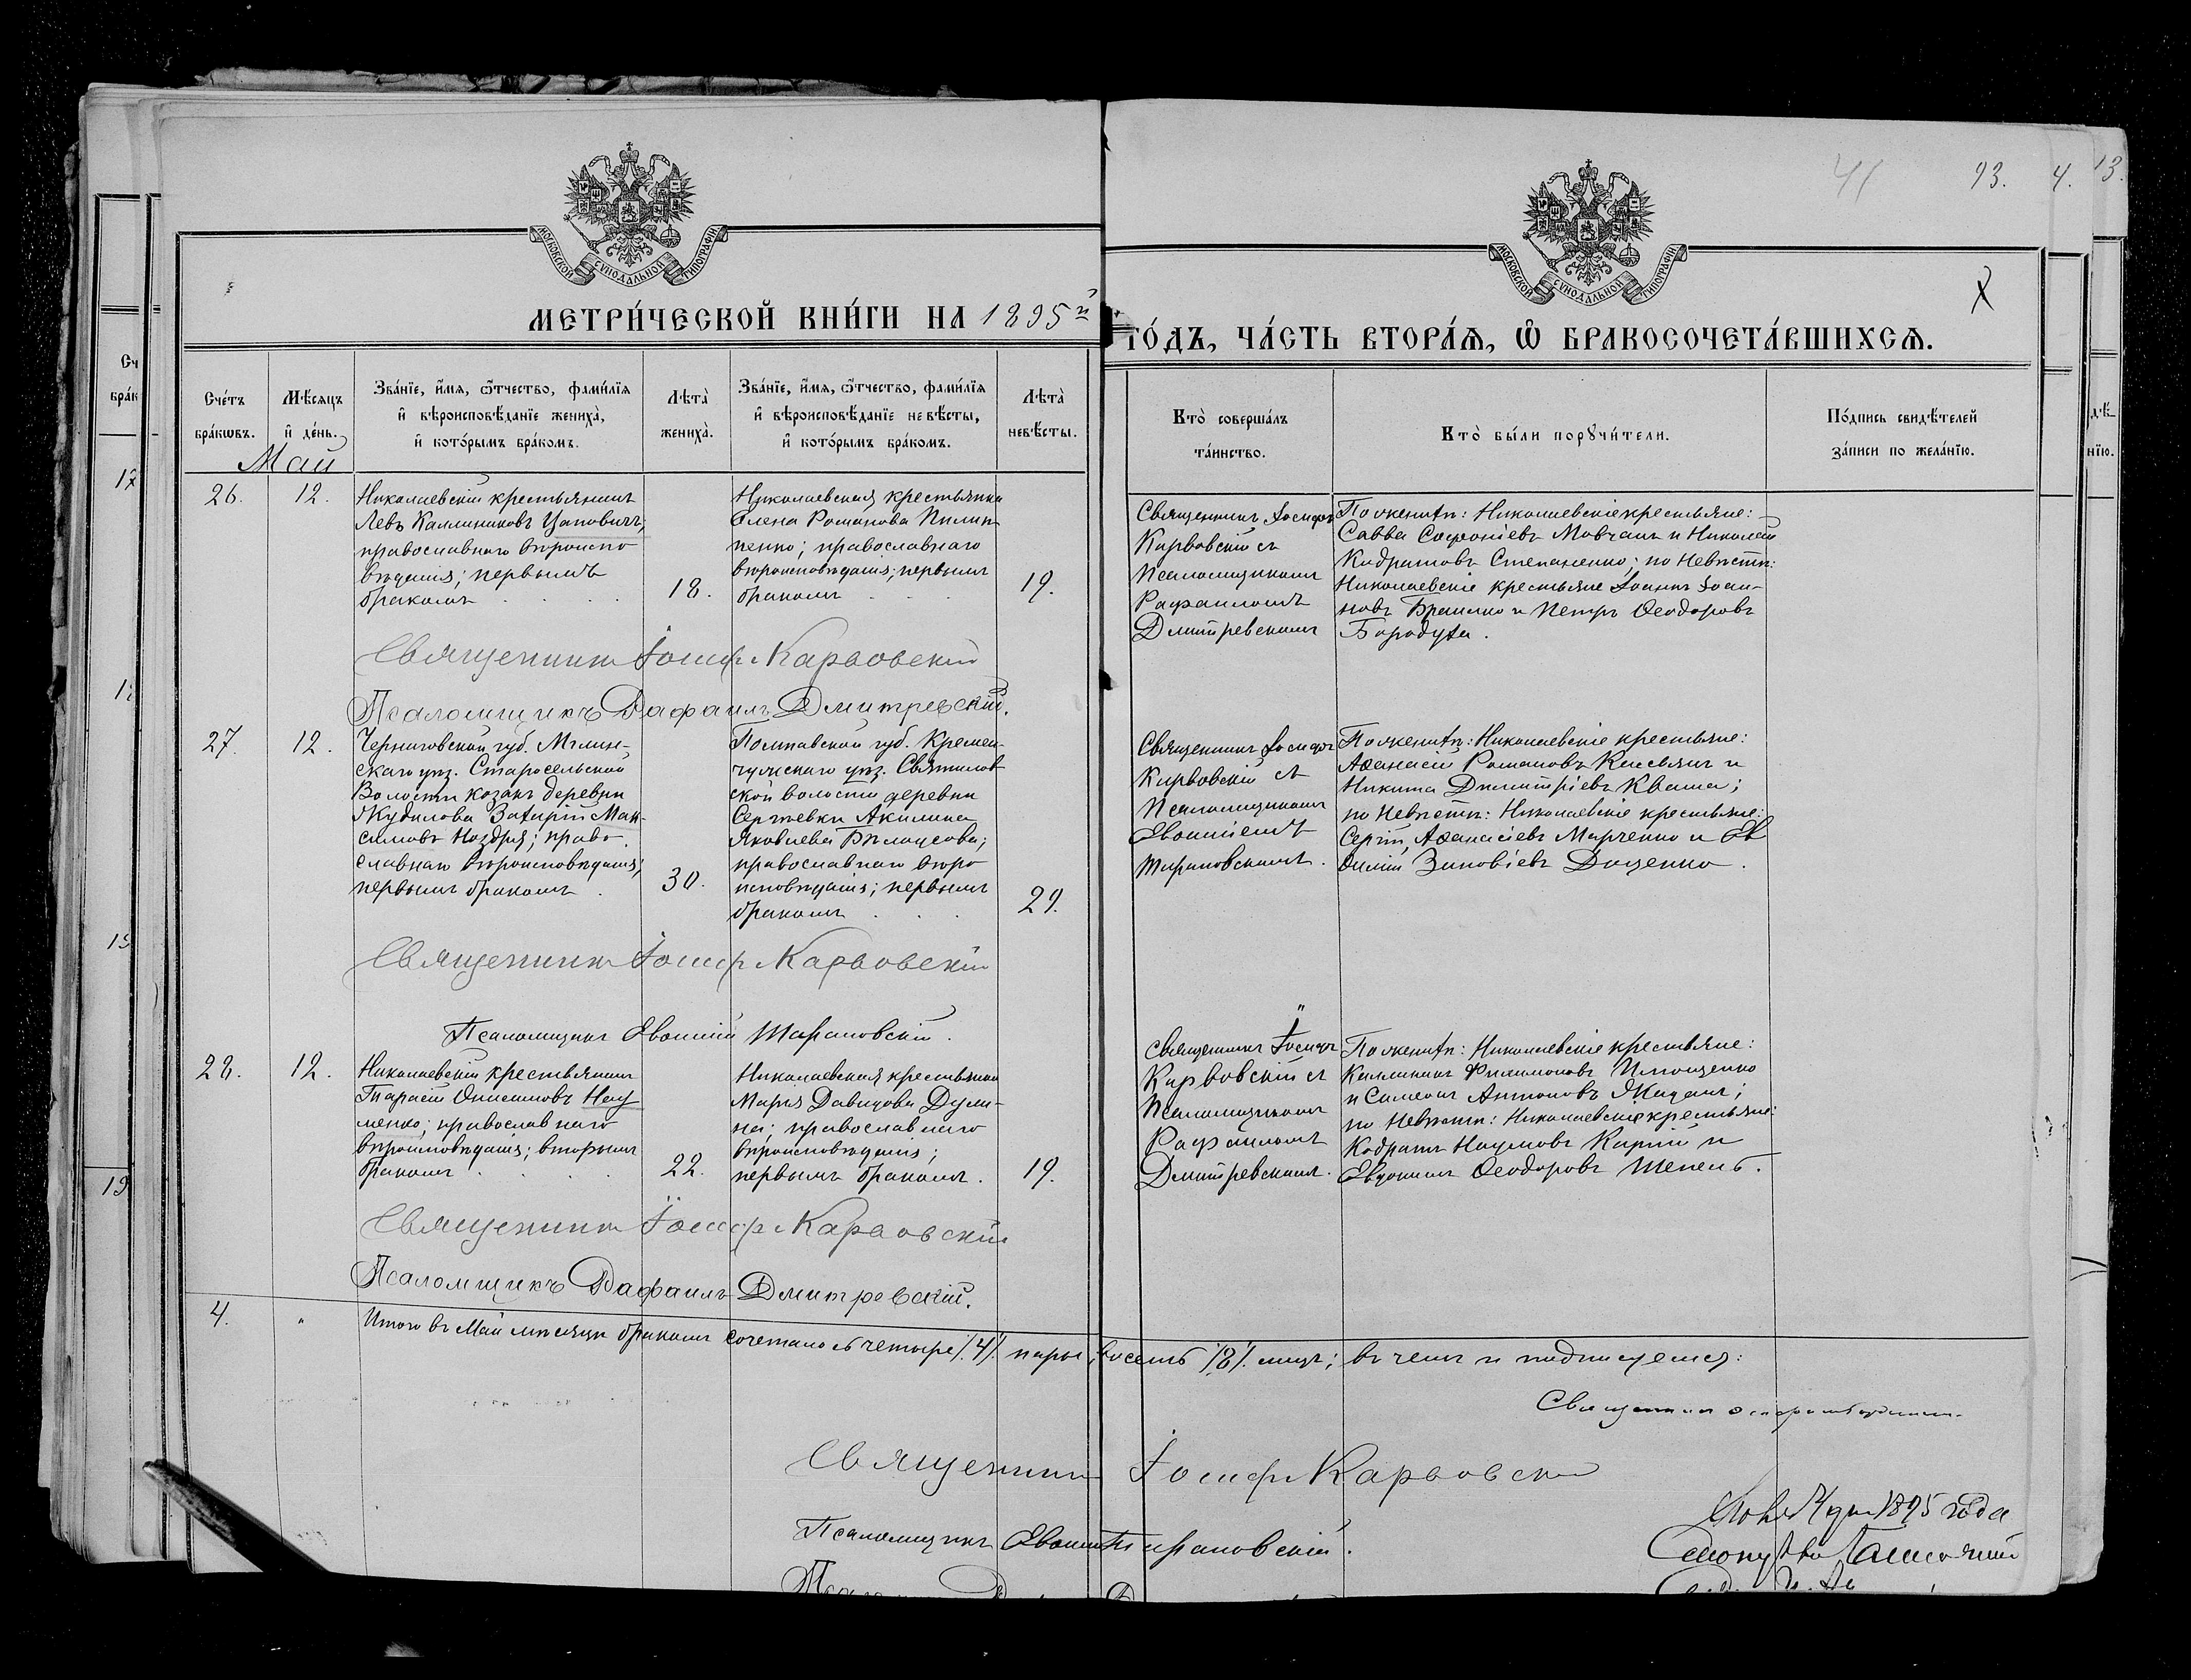 41 93. 4. 13.
МОСКОВСКОЙ СѴНОДАЛЬНОЙ ТИПОГРАФІИ
МОСКОВСКОЙ СѴНОДАЛЬНОЙ ТИПОГРАФІИ
МЕТРИ́ЧЕСКОЙ КНИ́ГИ НА 1895й ГО́ДЪ, ЧА́СТЬ ВТОРА́Ѧ, Ѽ БРАКОСОЧЕТА́ВШИХСѦ.
Сче́тъ бра́кѡвъ.
Мѣ́сѧцъ и҆ де́нь.
Зва́нїе, и҆́мѧ, ѻ҆́тчество, фами́лїѧ и҆ вѣроисповѣ́данїе жениха̀, и҆ кото́рымъ бра́комъ.
Лѣта̀ жениха̀.
Зва́нїе, и҆́мѧ, ѻ҆́тчество, фами́лїѧ и҆ вѣроисповѣ́данїе невѣ́сты, и҆ кото́рымъ бра́комъ.
Лѣта̀ невѣ́сты.
Кто̀ соверша́лъ та́инство.
Кто̀ бы́ли порꙋчи́тели.
По́дпись свидѣ́телей за́писи по жела́нїю.
Май
26.
12.
Николаевскій крестьянинъ
Левъ Каллиниковъ Цаповичъ,
православнаго вѣроиспо
вѣданія; первымъ
бракомъ
18.
Николаевская крестьянка
Елена Романова Пилип
пенко; православнаго
вѣроисповѣданія; первымъ
бракомъ
19.
Священникъ Іосифъ
Карвовскій съ
Псаломщикомъ
Рафаиломъ
Дмитревскимъ
По женихѣ: Николаевскіе крестьяне:
Савва Софроніевъ Мовчанъ и Николай
Кодратовъ Степаненко; по Невѣстѣ:
Николаевскіе крестьяне Іоаннъ Іоан-
новъ и Петръ Ѳеодоровъ
Бородуха.
Священникъ Іосифъ Карвовскій
Псаломщикъ Рафаилъ Дмитревскій.
27.
12.
Черниговской губ. Мглин-
скаго уѣз. Старосельской
Волости козакъ деревни
Жудилова Захарій Мак-
симовъ Ноздря; право
славнаго вѣроисповѣданія;
первымъ бракомъ
30.
Полтавской губ. Кремен-
чугскаго уѣз. Святилов
ской волости деревни
Сергѣевки Акилина
Яковлева Бѣлоусова;
православнаго вѣро
исповѣданія; первымъ
бракомъ
29.
Священникъ Іосифъ
Карвовскій съ
Псаломщикомъ
Евфиміемъ
По женихѣ: Николаевскіе крестьяне:
Аѳанасій Романовъ Касьянъ и
Никита Димитріевъ Кваша;
по Невѣстѣ: Николаевскіе крестьяне:
Сергій Аѳанасіевъ Марченко и Ев
ѳимій Зиновіевъ Доценко.
Священникъ Іосифъ Карвовскій
Псаломщикъ
28.
12.
Николаевскій крестьянинъ
Тарасій Онисимовъ Нау
менко; православнаго
вѣроисповѣданія; вторымъ
бракомъ
22.
Николаевская крестьянка
Марья Давидова
православнаго
вѣроисповѣданія;
первымъ бракомъ.
19.
Священникъ Іосифъ
Карвовскій съ
Псаломщикомъ
Рафаиломъ
Дмитревскимъ.
По женихѣ: Николаевскіе крестьяне:
Каллиникъ Филимоновъ Ипощенко
и Симеонъ Антоновъ Жаданъ;
по Невѣстѣ: Николаевскіе крестьяне:
Кодратъ Наумовъ Кирій и
Евдокимъ Ѳеодоровъ Шепель.
Священникъ Іосифъ Карвовскій
Псаломщикъ Рафаилъ Дмитревскій.
4.
"
Итого въ Маѣ мѣсяцѣ бракомъ сочеталось четыре /4/ пары, восемь /8/ лицъ; въ чемъ и подписуемся:
Священникъ Іосифъ Карвовскій
Псаломщикъ
1895 года